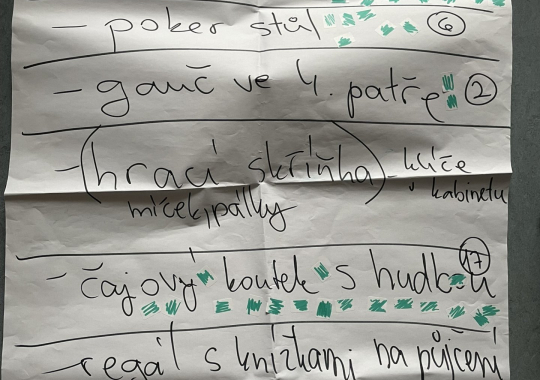 - poker stůl 6
- gauč ve 4. patře 2
- (hrací skříňka) - klíče v kabinetu
míček, pálky
- čajový koutek s hudbou 17
- regál s knížkami na půjčení